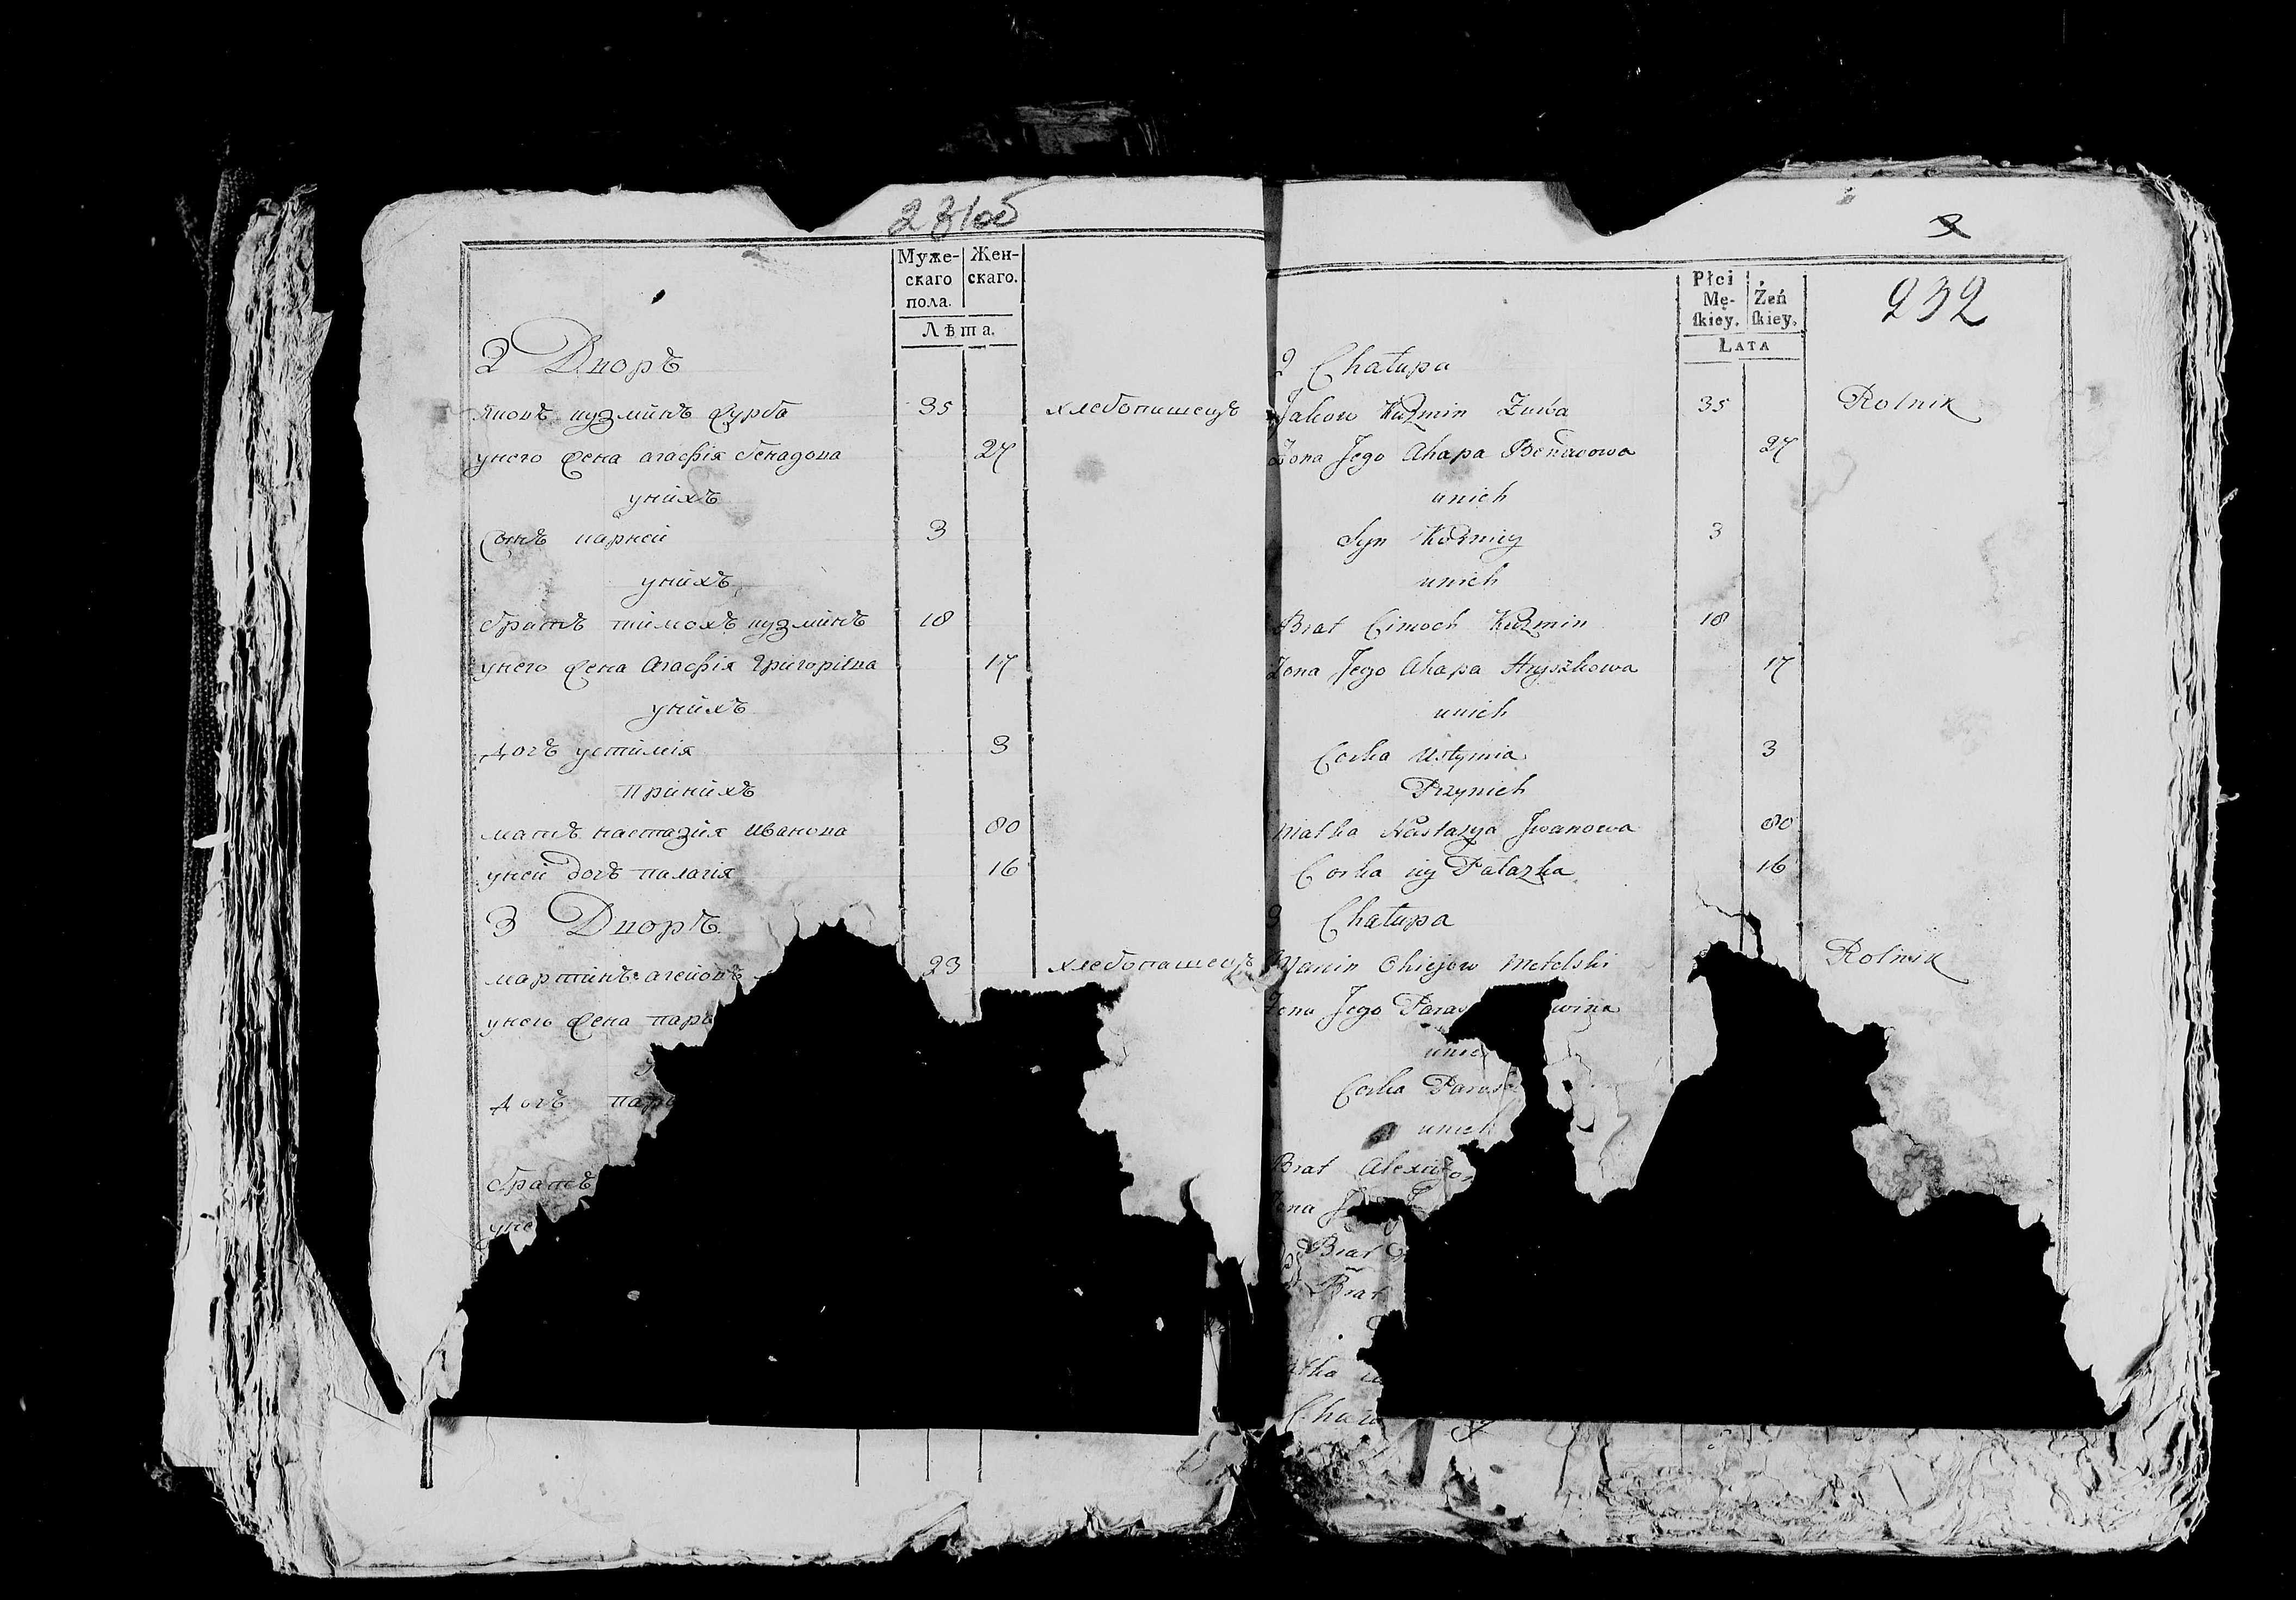 231об
Муже-
скаго
пола.
Жен-
скаго.
Лѣта.
2 Дворъ
Яковъ кузминъ журба 35 хлебопашецъ
унего жена агафія бенадова 27
унихъ
Сынъ карней 3
унихъ
братъ тимохъ кузминъ 18
унего жена Агафія Григорiева 17
унихъ
дочъ устимія 3
принихъ
мать настазія Иванова 80
уней дочъ палагія 16
3 Дворъ
мартинъ агеiовъ 23 хлебопашецъ
унего жена пара
дочъ пара
братъ
уне
232
Płci
Mę-
ſkiey.
Żeń
ſkiey.
Lata
2 Chałupa
Jakow Kuzmin Żurba 35 Rolnik
Żona Jego Ahapa 27
unich
Syn Korniey 3
unich
Brat Cimoch Kuzmin 18
Żona Jego Ahapa Hryszkowa 17
unich
Corka Ustymia 3
Przynich
Matka Nastazya Jwanowa 80
Corka iey Pałazka 16
3 Chałupa
Marcin Ohiejow Metelski Rolnik
Żona Jego Paras wina
unich
Corka Parask
unich
Brat Alexiey
Żona J
Brat
Brat